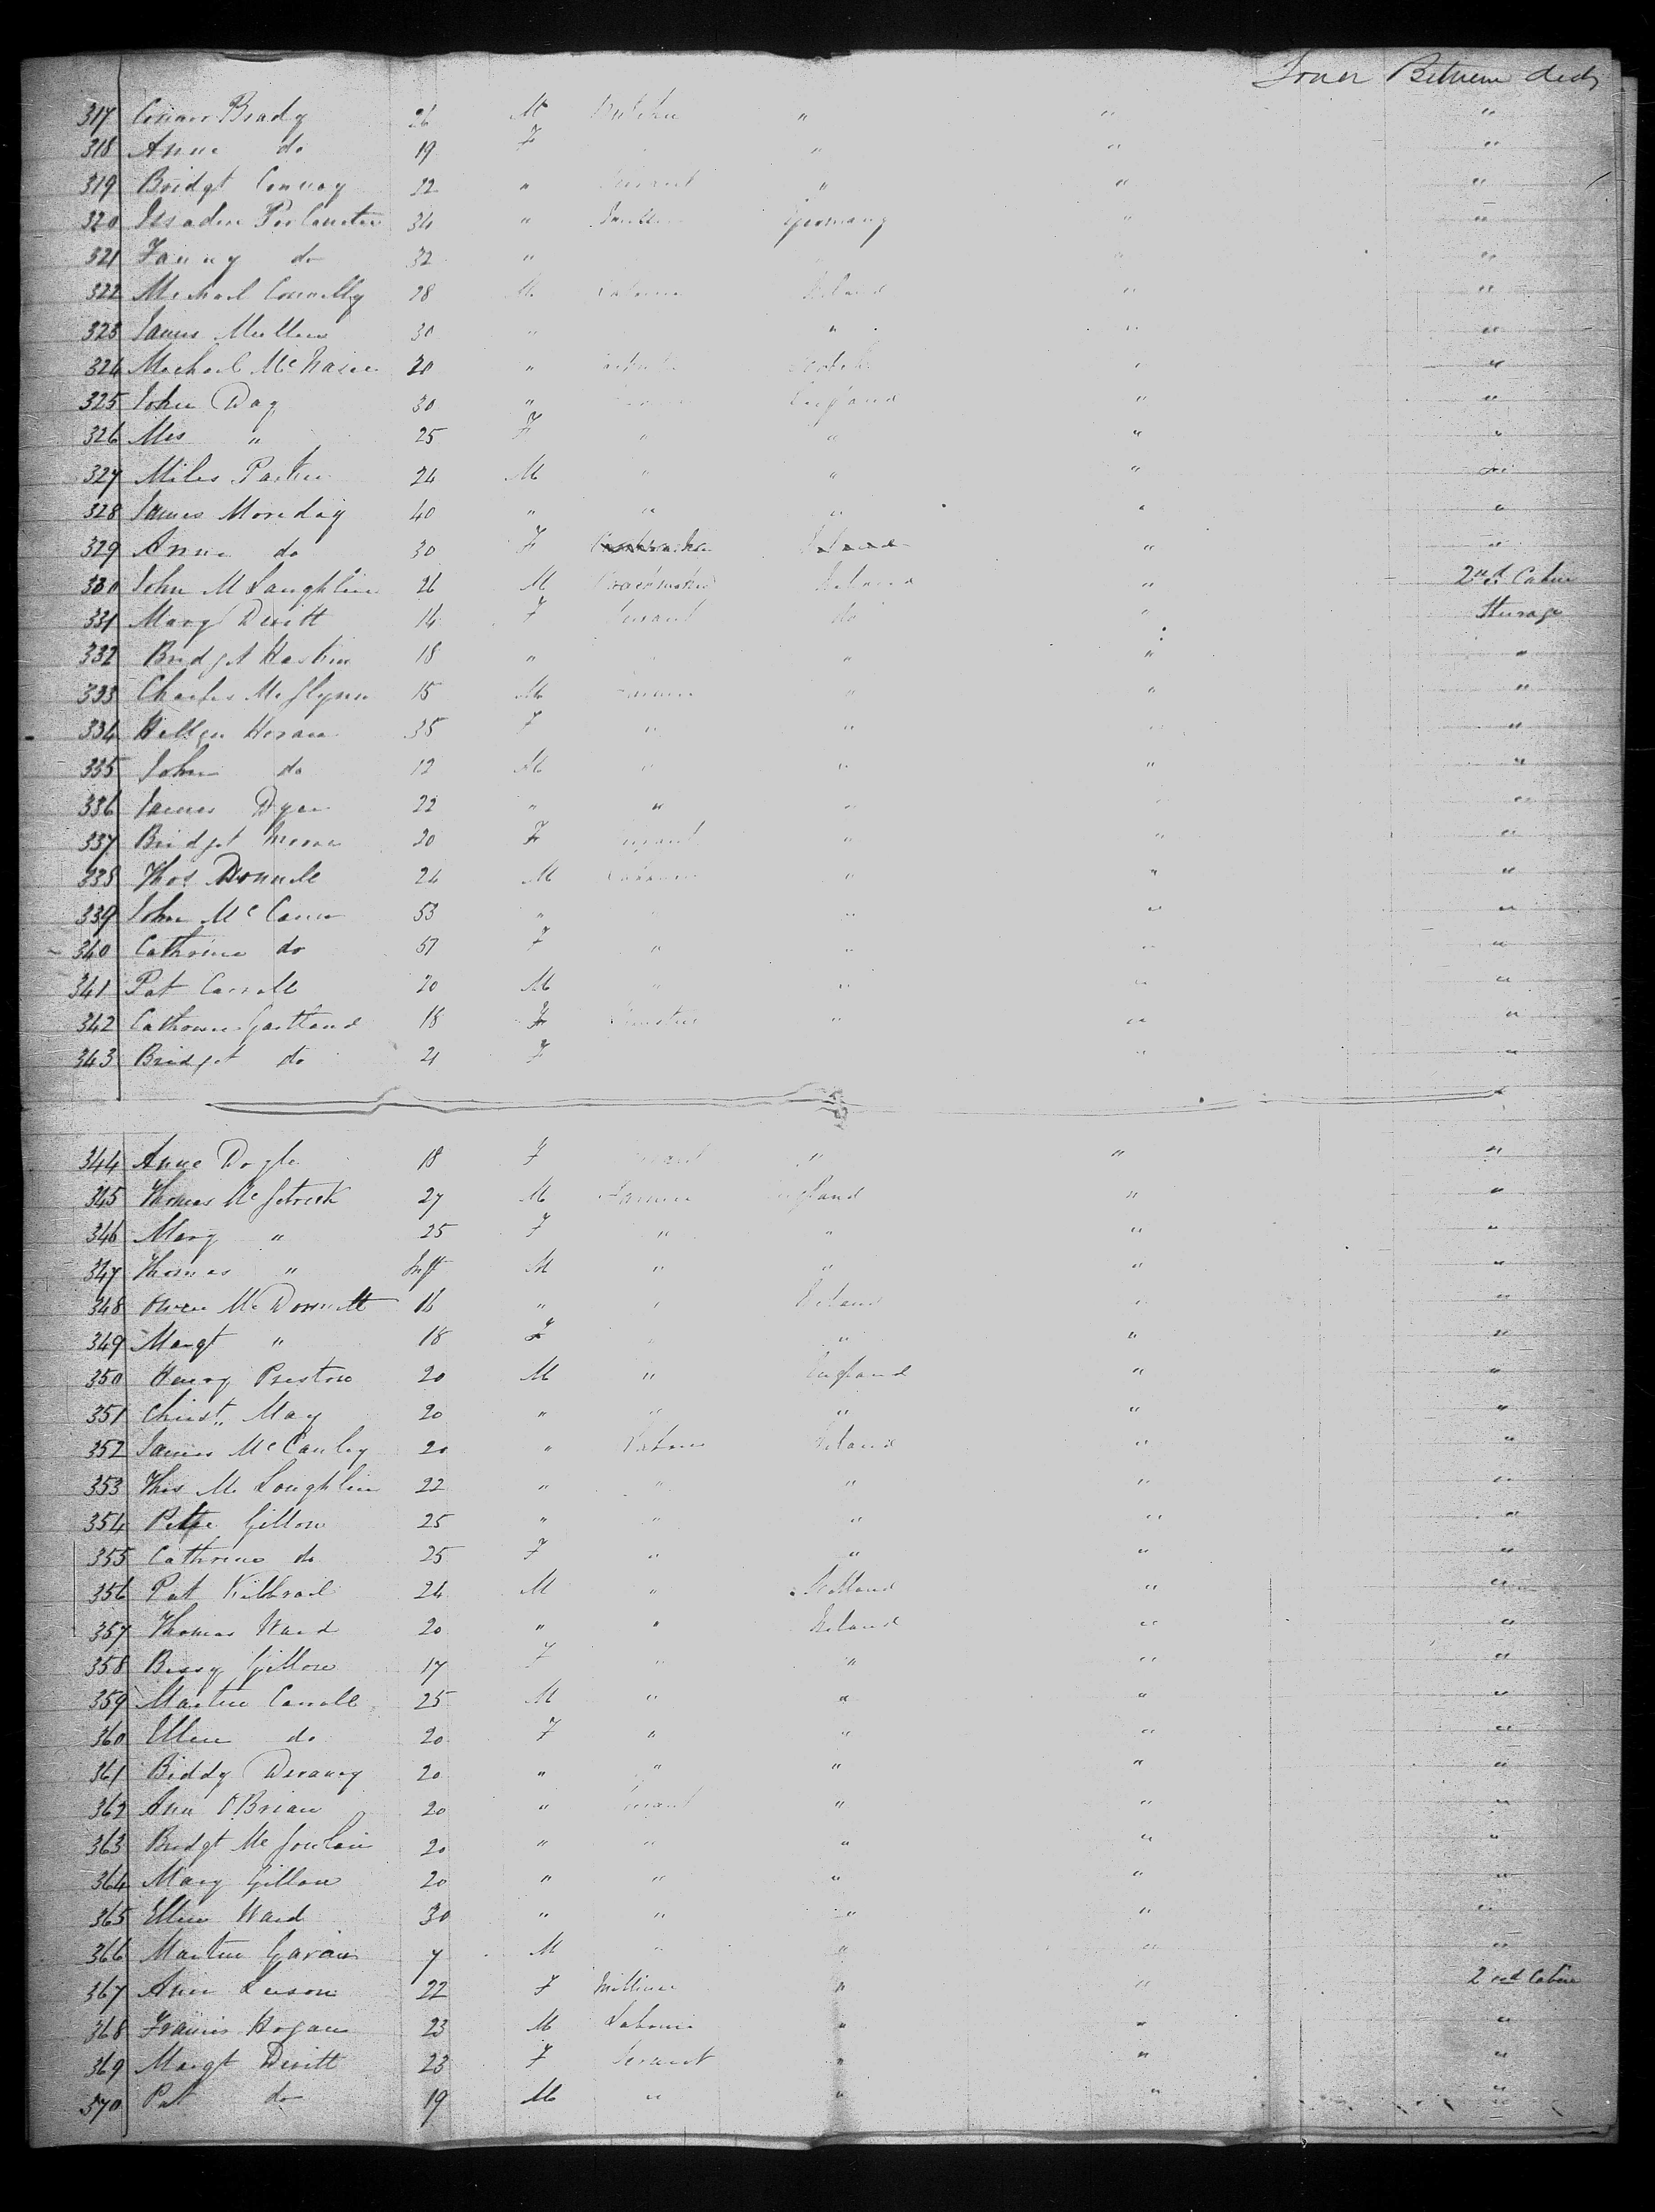 Lower Between decks
317 Connor Brady 26 M Butcher " " "
318 Anne do 19 F " " "
319 Bridgt Conway 22 " Servant " " "
320 34 " Germany " "
321 Fanny do 32 " " "
322 Michael Connelly 28 M Laborer Ireland " "
323 James Mullen 30 " " " "
324 Michael 20 " " "
325 John Day 30 " England " "
326 Mrs " 25 F " " " "
327 Miles Parker 24 M " " "
328 James Monday 40 " " " " "
329 Anne do 30 F " "
330 John McLaughlin 26 M Ireland " 2nd Cabin
331 Mary Devitt 16 F Servant do " Sterage
332 Bridget 18 " " " "
333 Charles McGlynn 15 M Farmer " " "
334 Horan 35 F " " " "
335 John do 12 M " " " "
336 James 22 " " " " "
337 Bridget 20 F Servant " " "
338 Thos 24 M Laborer " " "
339 John McCann 53 " " " "
340 Cathrine do 57 F " " " "
341 Pat Carroll 20 M " " " "
342 Cathrine Gartland 18 F " " "
343 Bridget do 21 F " "
344 Anne Doyle 18 F Servant " " "
345 Thomas 27 M Farmer England " "
346 Mary " 25 F " " " "
347 Thomas " Inft M " " " "
348 Owen McDonnell 16 " " Ireland " "
349 Margt " 18 F " " " "
350 Henry Preston 20 M " England " "
351 Christ" May 20 " " " " "
352 James McCauley 20 " Laborer Ireland " "
353 Thos McLoughlin 22 " " " " "
354 Peter Gillon 25 " " " " "
355 Cathrine do 25 F " " " "
356 Pat 24 M " Scotland " "
357 Thomas Ward 20 " " Ireland " "
358 Bessy Gillon 17 F " " " "
359 Martin Carroll 25 M " " " "
360 Ellen do 20 F " " " "
361 Biddy 20 " " " " "
362 Ann O'Brian 20 " Servant " " "
363 Bridgt 20 " " " " "
364 Mary Gillon 20 " " " " "
365 Ellen Ward 30 " " " " "
366 Martin 7 M " " " "
367 Ann 22 F Milliner " " 2nd Cabin
368 Francis Hogan 23 M Laborer " " "
369 Margt Devitt 23 F Servant " " "
370 Pat do 19 M " " " "